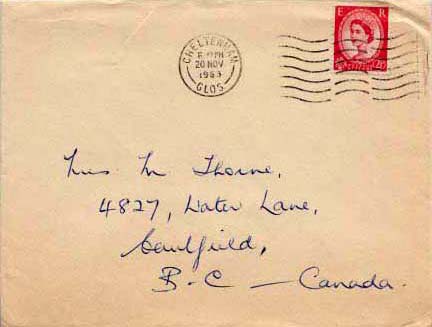 CHELTENHAM
PM
20 NOV
1963
GLOS.
E R
Mrs M Thorne,
4827, Water Lane,
Caulfield,
B.C — Canada.